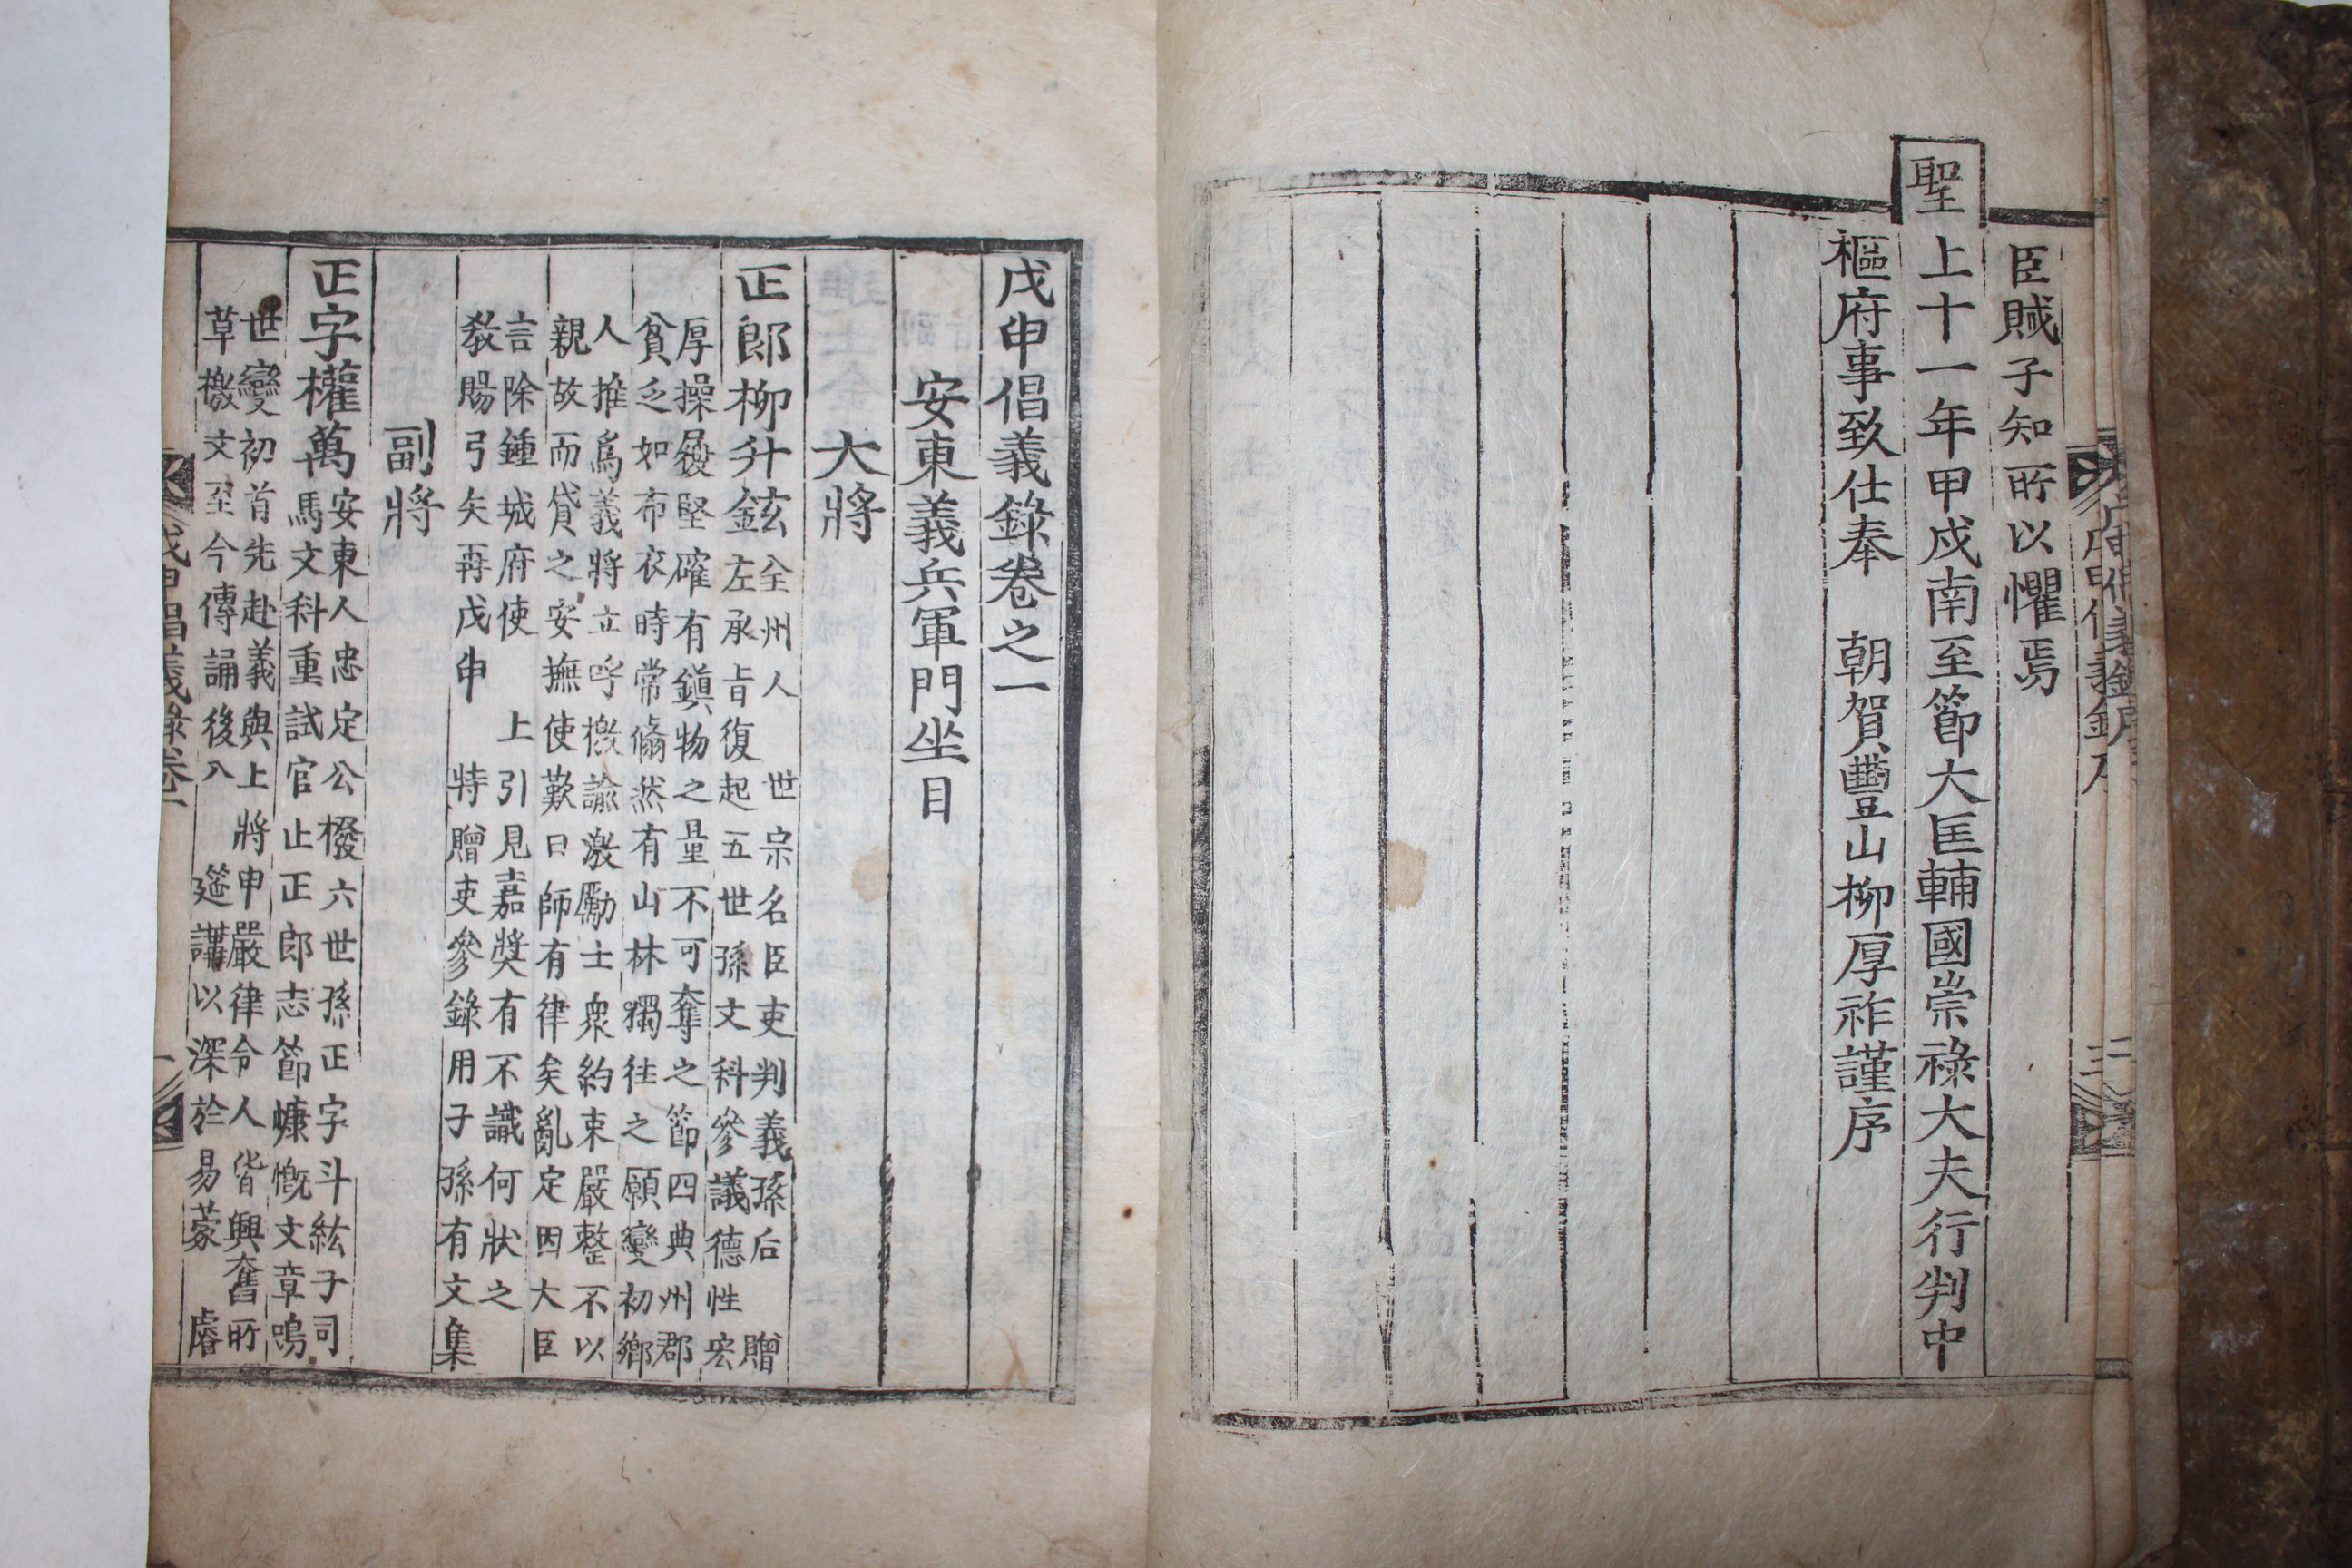 臣賊子知所以懼焉
聖
上十一年甲戌南至節大匡輔國崇祿大夫行判中
樞府事致仕奉 朝賀豐山柳厚祚謹序
戊申倡義錄卷之一
安東義兵軍門坐目
大將
正郎柳升鉉
全州人 世宗名臣吏判義孫后 贈
左承旨復起五世孫文科參議德性宏
厚操履堅確有鎭物之量不可奪之節四典州郡
貧乏如布衣時常翛然有山林獨往之願變初鄉
人推爲義將立呼檄諭激勵士衆約束嚴整不以
親故而貸之安撫使歎曰師有律矣亂定因大臣
言除鍾城府使 上引見嘉奬有不識何狀之
教賜弓矢再戊申 特贈吏參錄用子孫有文集
副將
正字權萬
安東人忠定公橃六世孫正字斗紘子司
馬文科重試官止正郎志節慷慨文章鳴
世變初首先赴義與上將申嚴律令人皆興奮所
草檄文至今傳誦後入 筵講以深於易蒙 睿
戊申倡義錄卷一
一
三
二